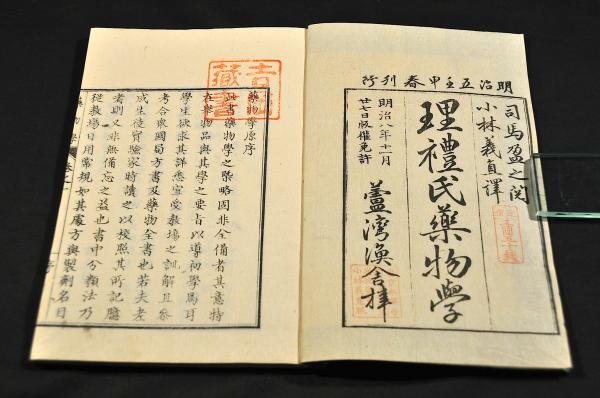 明治五壬申春刊行
司馬盈之閲
小林義直譯
理禮氏藥物學
明治八年十一月
廿七日版権免許
蘆湾漁舎擇
藥物學原序
此書藥物學之槩略固非全備者其意特
在舉物品與其學之要旨以導初學焉耳
學生欲求其詳悉宜受教場之訓解且參
考合衆國局方書及藥物全書也若夫老
成生徒實驗家時讀之以挍照其所記臆
者則又非無備忘之益也書中分類法乃
從教場日用常規如其處方與製劑名目